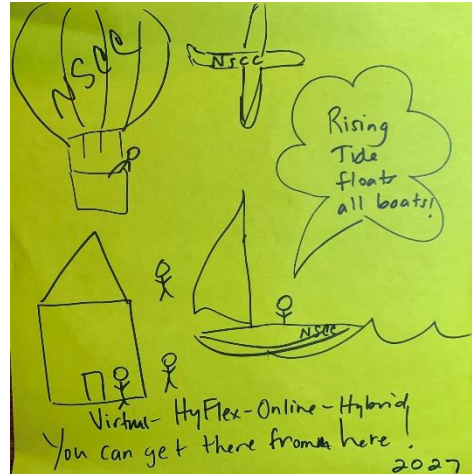 NSCC
NSCC
Rising
Tide
floats
all boats!
NSCC
Virtual-HyFlex-Online-Hybrid
You can get there from here!
2027